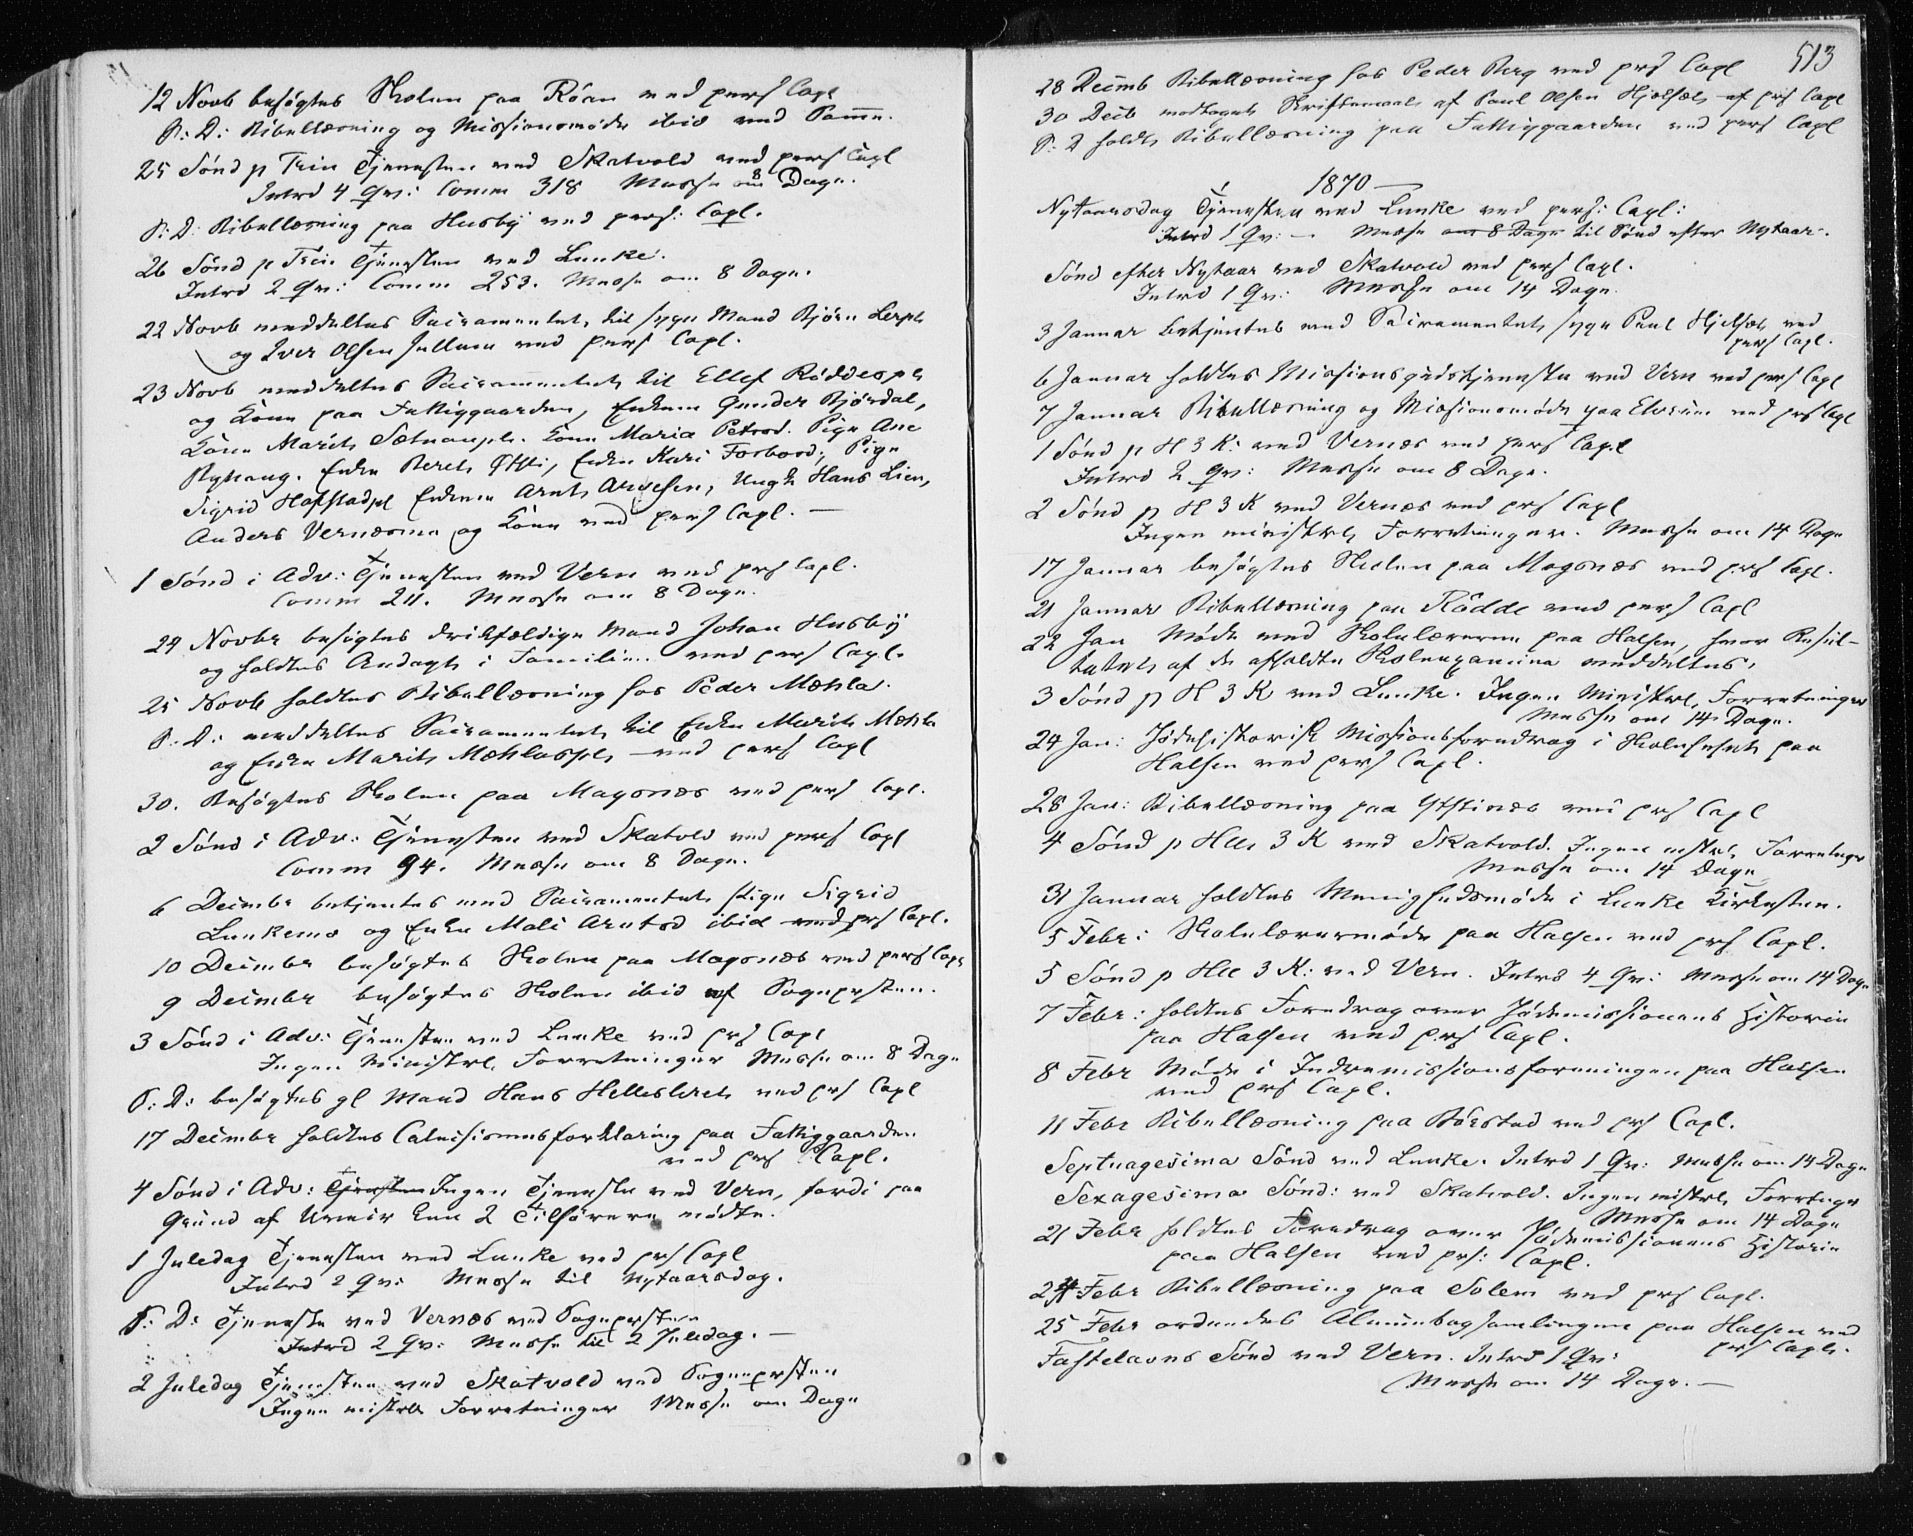 12 Novb besøgtes Skolen paa Røen ved pers Cape
S: D: Bibellæsning og Missionsmøde ibid ved Samme.
25 Sønd p Trin Tjenesten ved Skatvold ved pers Capl
Introd 4 Qv: Comm 318 Messe om 8 Dage.
S: D: Bibellæsning paa Husby ved pers: Capl.
26 Sønd p Trin Tjenesten ved Lunke.
Introd 2 Qv: Comm 253. Messe om 8 Dage.
22 Novb meddeltes Sacramentet til syge Mand Bjørn
og Iver Olsen Jullum ved pers Capl.
23 Novb meddeltes Sacramentet til Ellef Røddespl
og Kone paa Fattiggaarden, Enkem Gunder Bjørdal,
Kone Marit Sætnanpl. Kone Maria Petersd. Pige Ane
Ryhaug. Enke Beret Østi, Enke Kari Forbord, Pige
Sigrid Hofstadpl Enkem Arnt Arnesen, Ungk Hans Lien,
Anders Vernæsmo og Kone ved pers Capl. —
1 Sønd i Adv: Tjenesten ved Vern ved prs Capl.
Comm 211. Messe om 8 Dage.
24 Novbr besøgtes Mand Johan Husby
og holdtes Andagt i Familien ved pers Capl.
25 Novb holdtes Bibellæsning hos Peder Mæhla.
S: D: meddeltes Sacramentet til Enke Marit Mæhla
og Enke Marit Mæhlaspl ved pers Capl
30. Besøgtes Skolen paa Magonæs ved pers Capl.
2 Sønd i Adv: Tjenesten ved Skatvold ved pers Capl
Comm 94. Messe om 8 Dage.
6 Decembr betjentes med Sacramentet Pige Sigrid
Lunkemo og Enke Mali Arntsd ibid ved prs Capl.
10 Decembr besøgtes Skolen paa Magonæs ved pers Cape
9 Decembr besøgtes Skolen ibid af Sogneprsten.
3 Sønd i Adv: Tjenesten ved Lunke ved prs Capl
Ingen Ministrl Forretninger Messe om 8 Dage
S: D: besøgtes gl Mand Hans Hellesleret ved prs Capl
17 Decembr holdtes Catechismusforklaring paa Fattiggaarden
ved prs Capl.
4 Sønd i Adv: Tjenesten Ingen Tjeneste ved Vern, fordi paa
Grund af Uveir kun 2 Tilhørere mødte.
1 Juledag Tjenesten ved Lunke ved prs Capl
Introd 2 Qv: Messe til Nytaarsdag.
S: D: Tjeneste ved Vernæs ved Sogneprsten
Introd 2 Qv: Messe til 2 Juledag. —
2 Juledag Tjenesten ved Skatvold ved Sogneprsten
Ingen mistrl Forretninger Messe om Dage
513
28 Decemb Bibellæsning hos Peder Berg ved prs Capl
30 Decb modtoges Skriftemaal af Paul Olsen Hjelsæt af prs Capl
S: D holdt Bibellæsning paa Fattiggaarden ved pers Capl
1870 —
Nytaarsdag Tjenesten ved Lunke ved pers: Capl:
Introd 1 Qv: — Messe om 8 Dage til Sønd efter Nytaar.
Sønd efter Nytaar ved Skatvold ved pers Capl.
Introd 1 Qv: Messe om 14 Dage.
3 Januar betjentes med Sacramentet syge Paul Hjelsæt ved
pers Capl.
6 Januar holdtes Missionsgudstjeneste ved Vern ved prs Capl
7 Januar Bibellæsning og Missionsmøde paa Elverum ved prs Capl
1 Sønd p H 3 K: ved Vernæs ved pers Capl
Introd 2 Qv: Messe om 8 Dage.
2 Sønd p H 3 K ved Vernæs ved prs Capl
Ingen ministrl Forretninger. Messe om 14 Dage
17 Januar besøgtes Skolen paa Magonæs ved prs Capl.
21 Januar Bibellæsning paa Rødde ved pers Capl
22 Jan Møde med Skolelærerne paa Halsen, hvor Resul-
tatet af de afholdte Skoleexamina meddeltes.
3 Sønd p H 3 K ved Lunke. Ingen Ministrl Forretninger
Messe om 14 Dage.
24 Jan: Jødehistorisk Missionsforedrag i Skolehuset paa
Halsen ved pers Capl.
28 Jan: Bibellæsning paa Ystines ved prs Capl
4 Sønd p Hell 3 K ved Skatvold. Ingen mstrl Forretngr
Messe om 14 Dage
31 Januar holdtes Menighedsmøde i Lunke Kirkestue.
5 Febr: Skolelærermøde paa Halsen ved prs Capl.
5 Sønd p Hll 3 K: ved Vern. Introd 4 Qv: Messe om 14 Dage
7 Febr: holdtes Foredrag over Jødemissionens Historie
paa Halsen ved prs Capl.
8 Febr Møde i Indremissionsforeningen paa Halsen
ved prs Capl.
11 Febr Bibellæsning paa Børstad ved prs Capl.
Septuagesima Sønd ved Lunke. Introd 1 Qv: Messe om 14 Dage
Sexagesima Sønd: ved Skatvold. Ingen mistrl Forretngr
Messe om 14 Dage
21 Febr holdtes Foredrag over Jødemissionens Historie
paa Halsen ved prs: Capl.
24 Febr Bibellæsning paa Solem ved prs Capl.
25 Febr ordnedes Almuebogsamlingen paa Halsen ved
prs Capl.
Fastelavns Sønd ved Vern. Introd 1 Qv:
Messe om 14 Dage. —